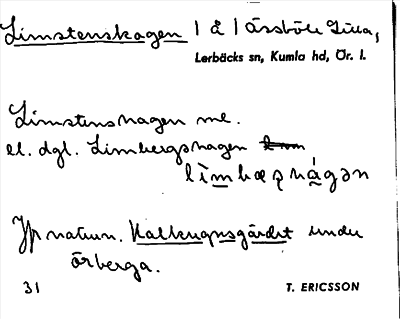 Limstenshagen | å | Åssböle Lilla,
Lerbäcks sn, Kumla hd, Ör. l.
Limstenshagen me.
el. dgl. Limbergshagen
Jfr naturn. Kalkugnsgärdet under
Örberga.
31 T. ERICSSON